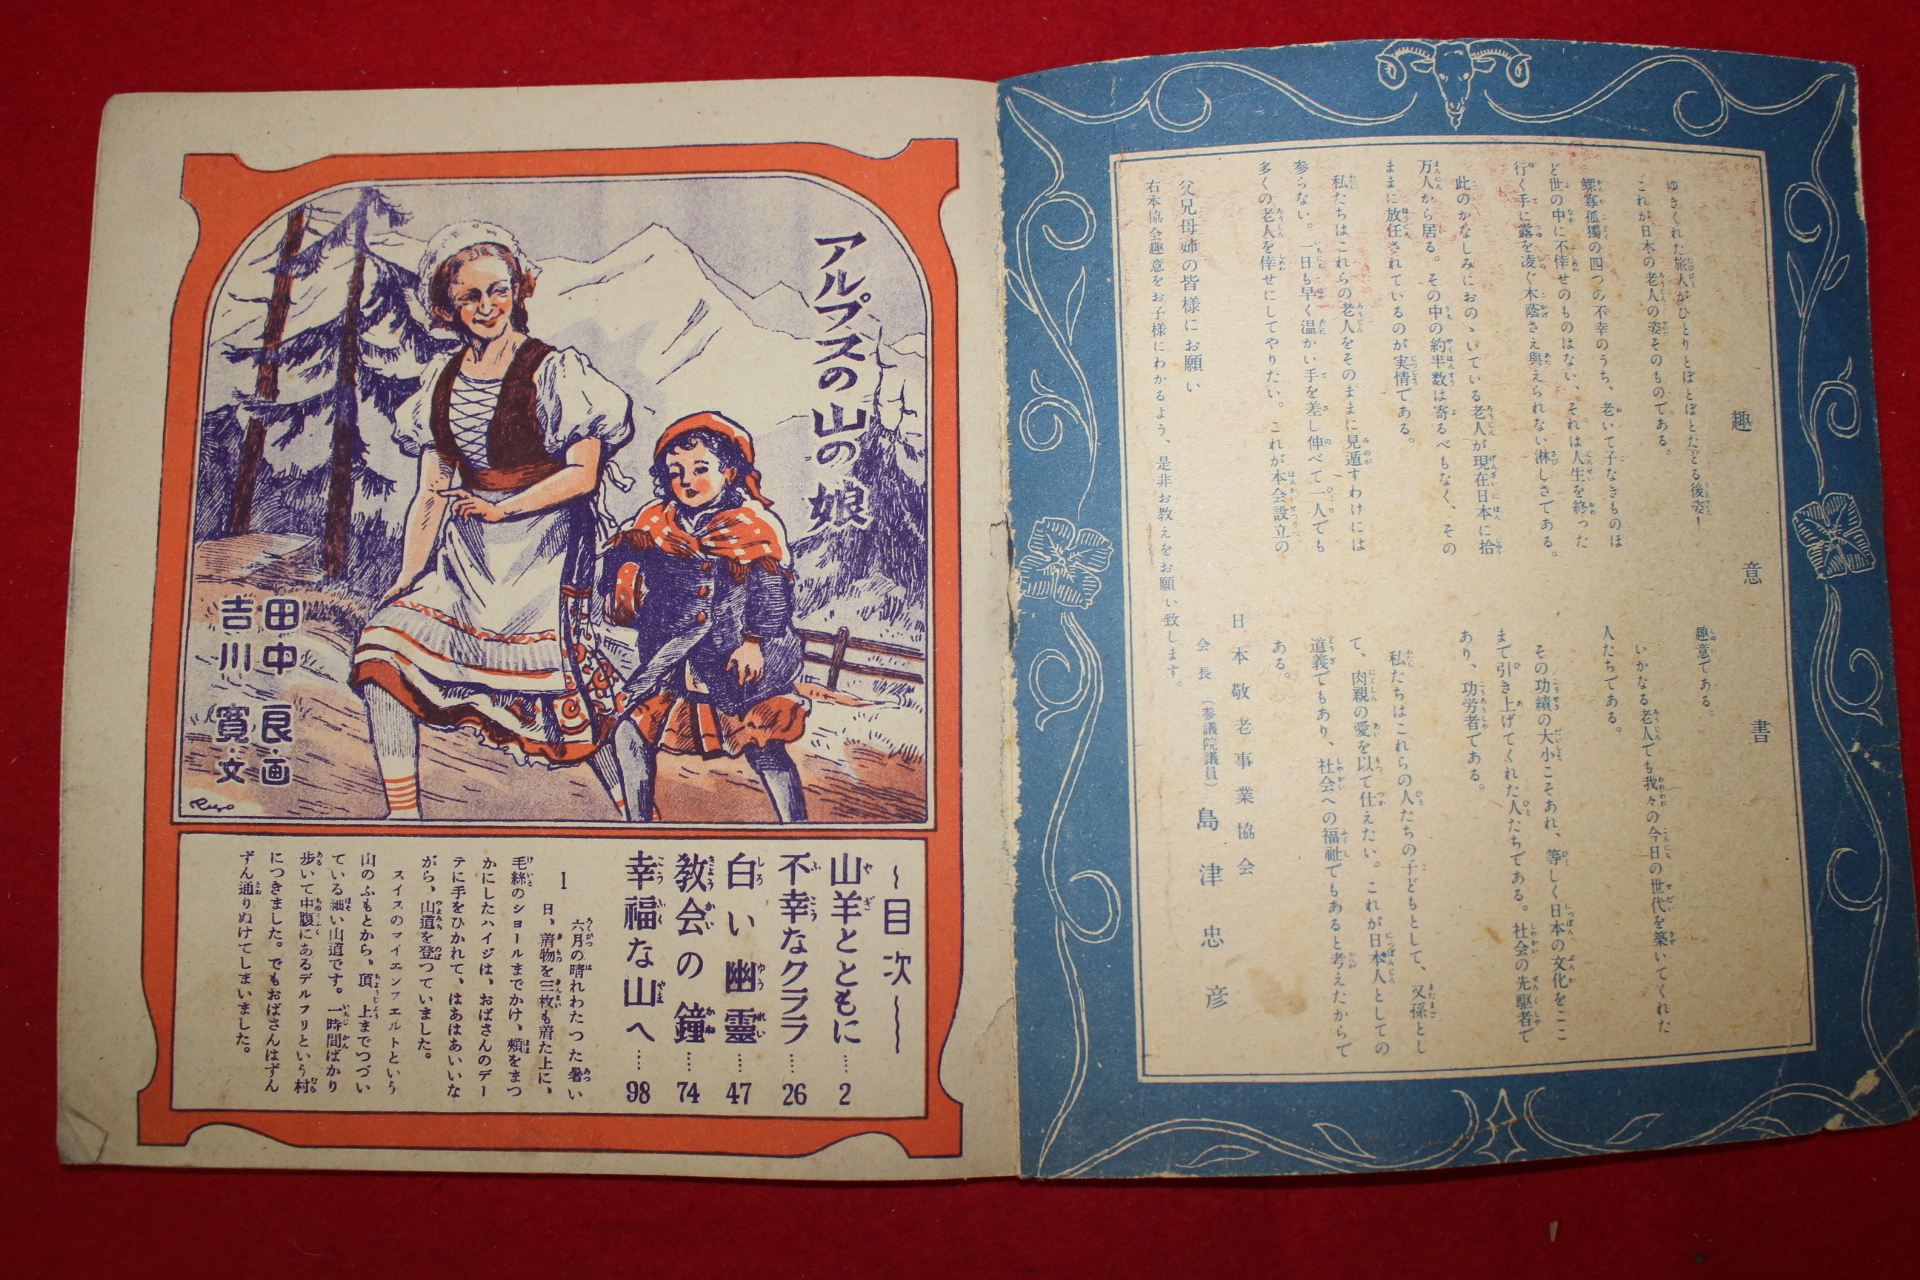 趣意書
ゆきくれた旅人がひとりとぼとぼとたどる後姿!
これが日本の老人の姿そのものである。
鰥寡孤獨の四つの不幸のうち、老いて子なきものほ
ど世の中に不倖せのものはない、それは人生を終った
行く手に露を凌ぐ木蔭さえ與えられない淋しさである。
此のかなしみにおのゝいている老人が現在日本に拾
万人から居る。その中の約半数は寄るべもなく、その
ままに放任されているのが実情である。
私たちはこれらの老人をそのままに見遁すわけには
参らない。一日も早く温かい手を差し伸べて一人でも
多くの老人を倖せにしてやりたい。これが本会設立の
趣意である。
いかなる老人でも我々の今日の世代を築いてくれた
人たちである。
その功績の大小こそあれ、等しく日本の文化をここ
まで引き上げてくれた人たちである。社会の先駆者で
あり、功労者である。
私たちはこれらの人たちの子どもとして、又孫とし
て、肉親の愛を以て仕えたい。これが日本人としての
道義でもあり、社会への福祉でもあると考えたからで
ある。
日本敬老事業協会
会長(参議院議員)島津忠彦
父兄母姉の皆様にお願い
右本協会趣意をお子様にわかるよう、是非お教えをお願い致します。
アルプスの山の娘
田中良・画
吉川寛・文
~目次~
山羊とともに……2
不幸なクララ……26
白い幽靈……47
教会の鐘……74
幸福な山へ……98
1
六月の晴れわたつた暑い
日、着物を三枚も着た上に、
毛絲のショールまでかけ、頬をまつ
かにしたハイジは、おばさんのデー
テに手をひかれて、はあはあいいな
がら、山道を登つていました。
スイスのマイエンフエルトという
山のふもとから、頂上までつづい
ている細い山道です。一時間ばかり
歩いて中腹にあるデルフリという村
につきました。でもおばさんはずん
ずん通りぬけてしまいました。